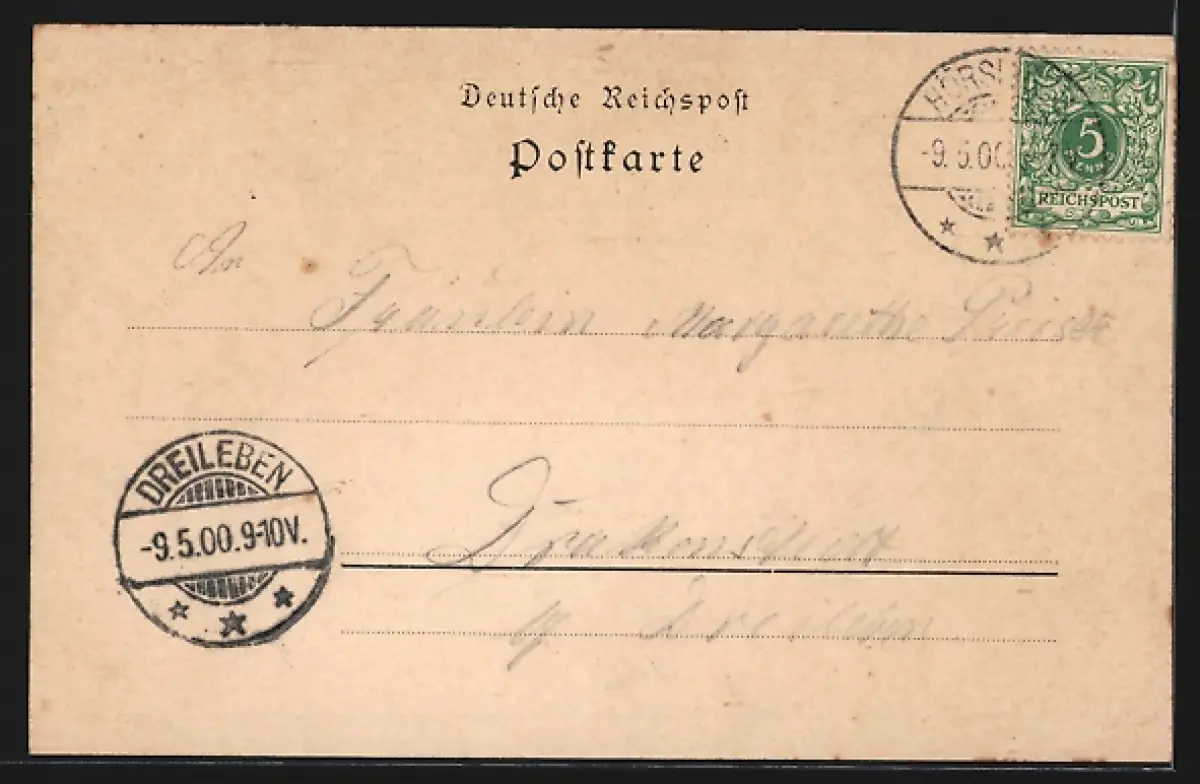 Deutsche Reichspost
Postkarte
HÖRSI
-9.5.00.
5
PFENNIG
REICHSPOST
An
Fräulein Margarethe
DREILEBEN
-9.5.00.9-10V.
Dreileben